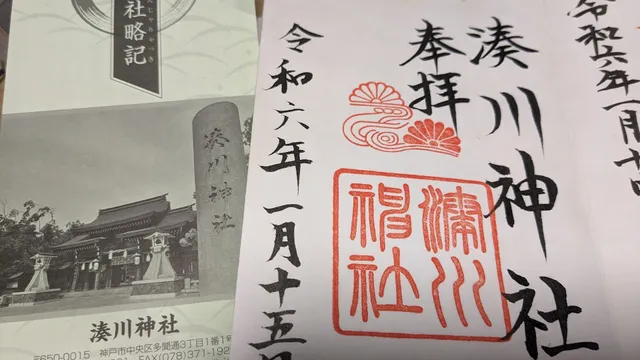 社略記
湊川神社
湊川神社
〒650-0015 神戸市中央区多聞通3丁目1
FAX(078)371-192
湊川神社
奉拝
湊川神社
令和六年一月十五日
令和六年一月十